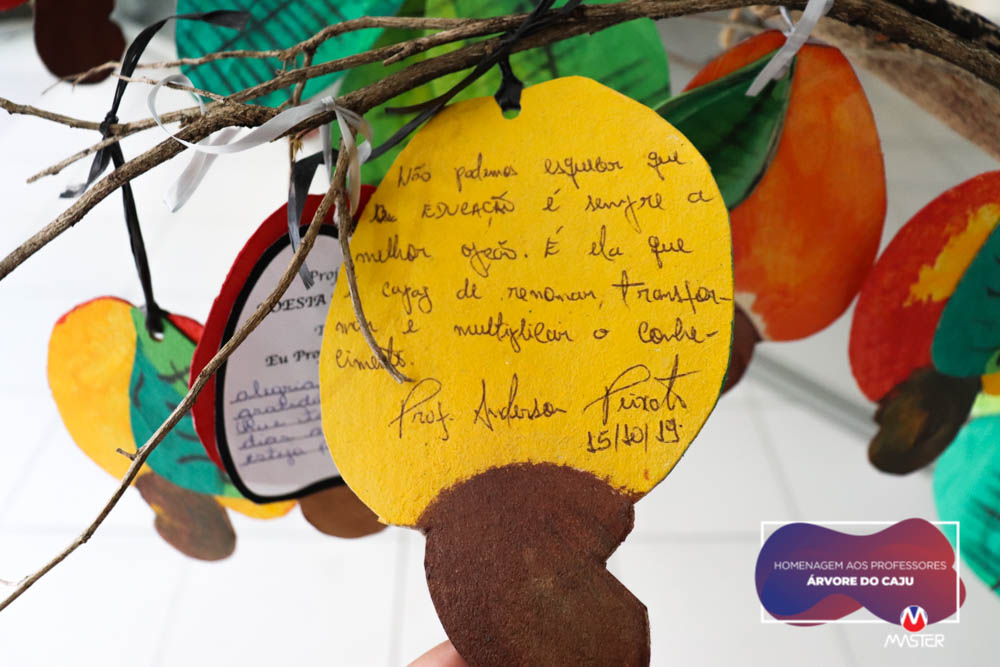 Não podemos esquecer que
a EDUCAÇÃO é sempre a
melhor opção. É ela que
é capaz de renovar, transfor-
mar e multiplicar o conhe-
cimento.
Prof. Anderson Peixoto
15/10/19.
Eu Pro
alegria
gratida
Que
dias a
esteja
HOMENAGEM AOS PROFESSORES
ÁRVORE DO CAJU
MASTER